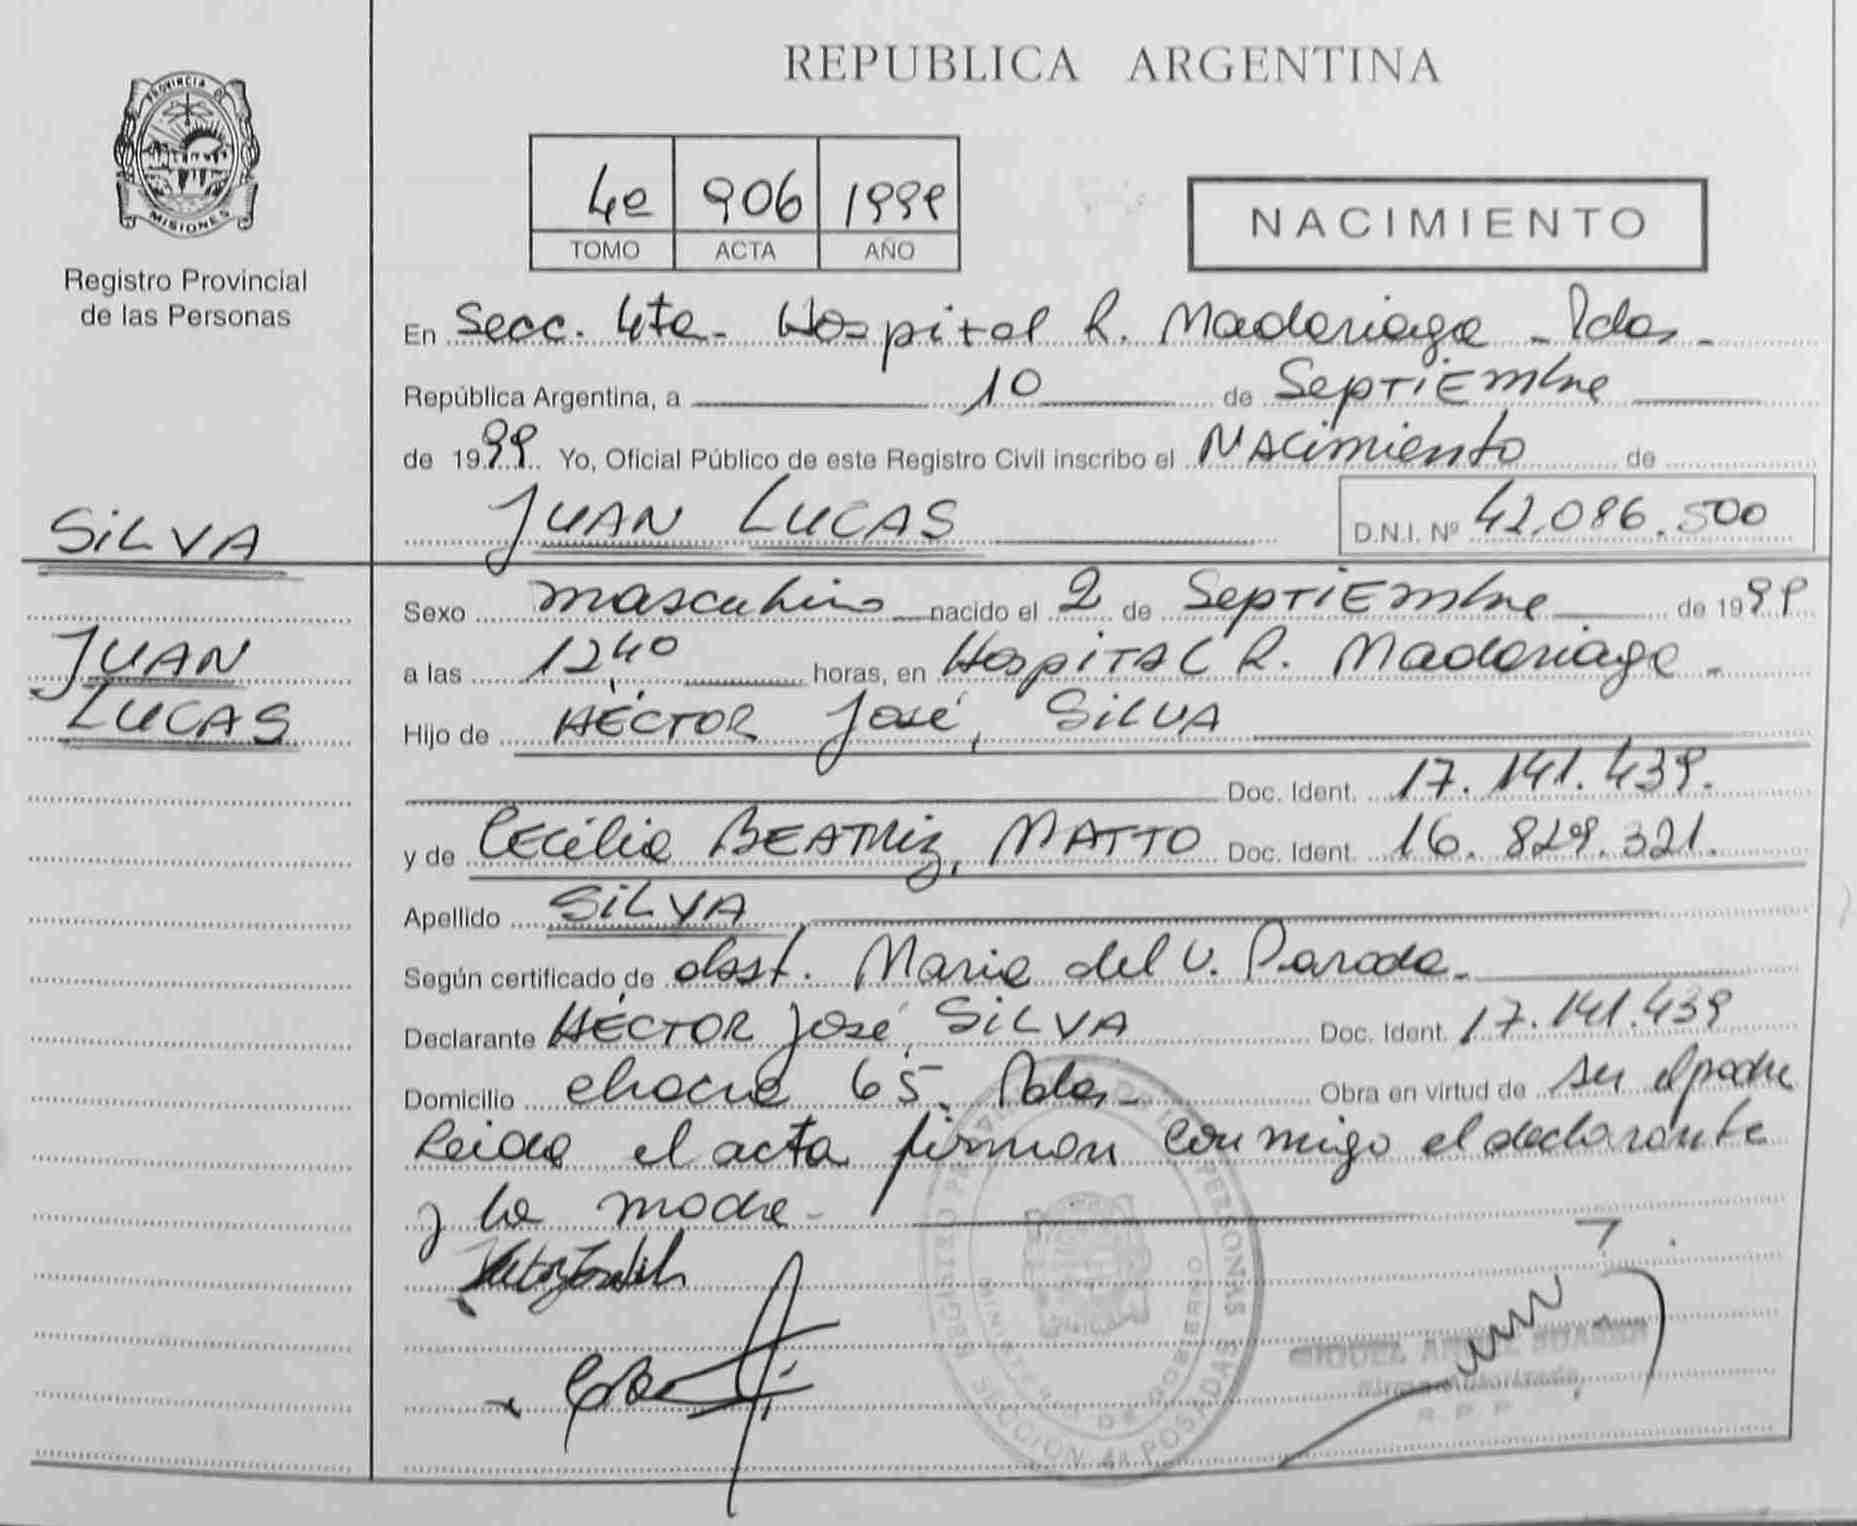 REPUBLICA ARGENTINA
PROVINCIA DE
MISIONES
Registro Provincial
de las Personas
4º 906 1999
TOMO ACTA AÑO
NACIMIENTO
En Secc. 4ta - Hospital R. Madariaga - Pdas -
República Argentina, a 10 de SepTiEmbre
de 1999 Yo, Oficial Público de este Registro Civil inscribo el NAcimiento de
JUAN LUCAS D.N.I. Nº 42.086.500
SiLVA
Sexo masculino nacido el 2 de SepTiEmbre de 1999
JUAN
a las 12,40 horas, en HospiTAL R. Madariaga -
LUCAS
Hijo de HÉCTOR José, SiLVA
Doc. Ident. 17.141.439.
y de Cecilia BEATRiz, MATTO Doc. Ident. 16.829.321.
Apellido SiLVA
Según certificado de obst. Maria del V. Parada.
Declarante HÉCTOR José, SiLVA Doc. Ident. 17.141.439
Domicilio chacra 65. Pdas - Obra en virtud de ser el padre
Leida el acta firman conmigo el declarante
y la madre -
REGISTRO DE LAS PERSONAS
MINISTERIO DE GOBIERNO
SECCION 4ª POSADAS
MIGUEL ANGEL
R P P